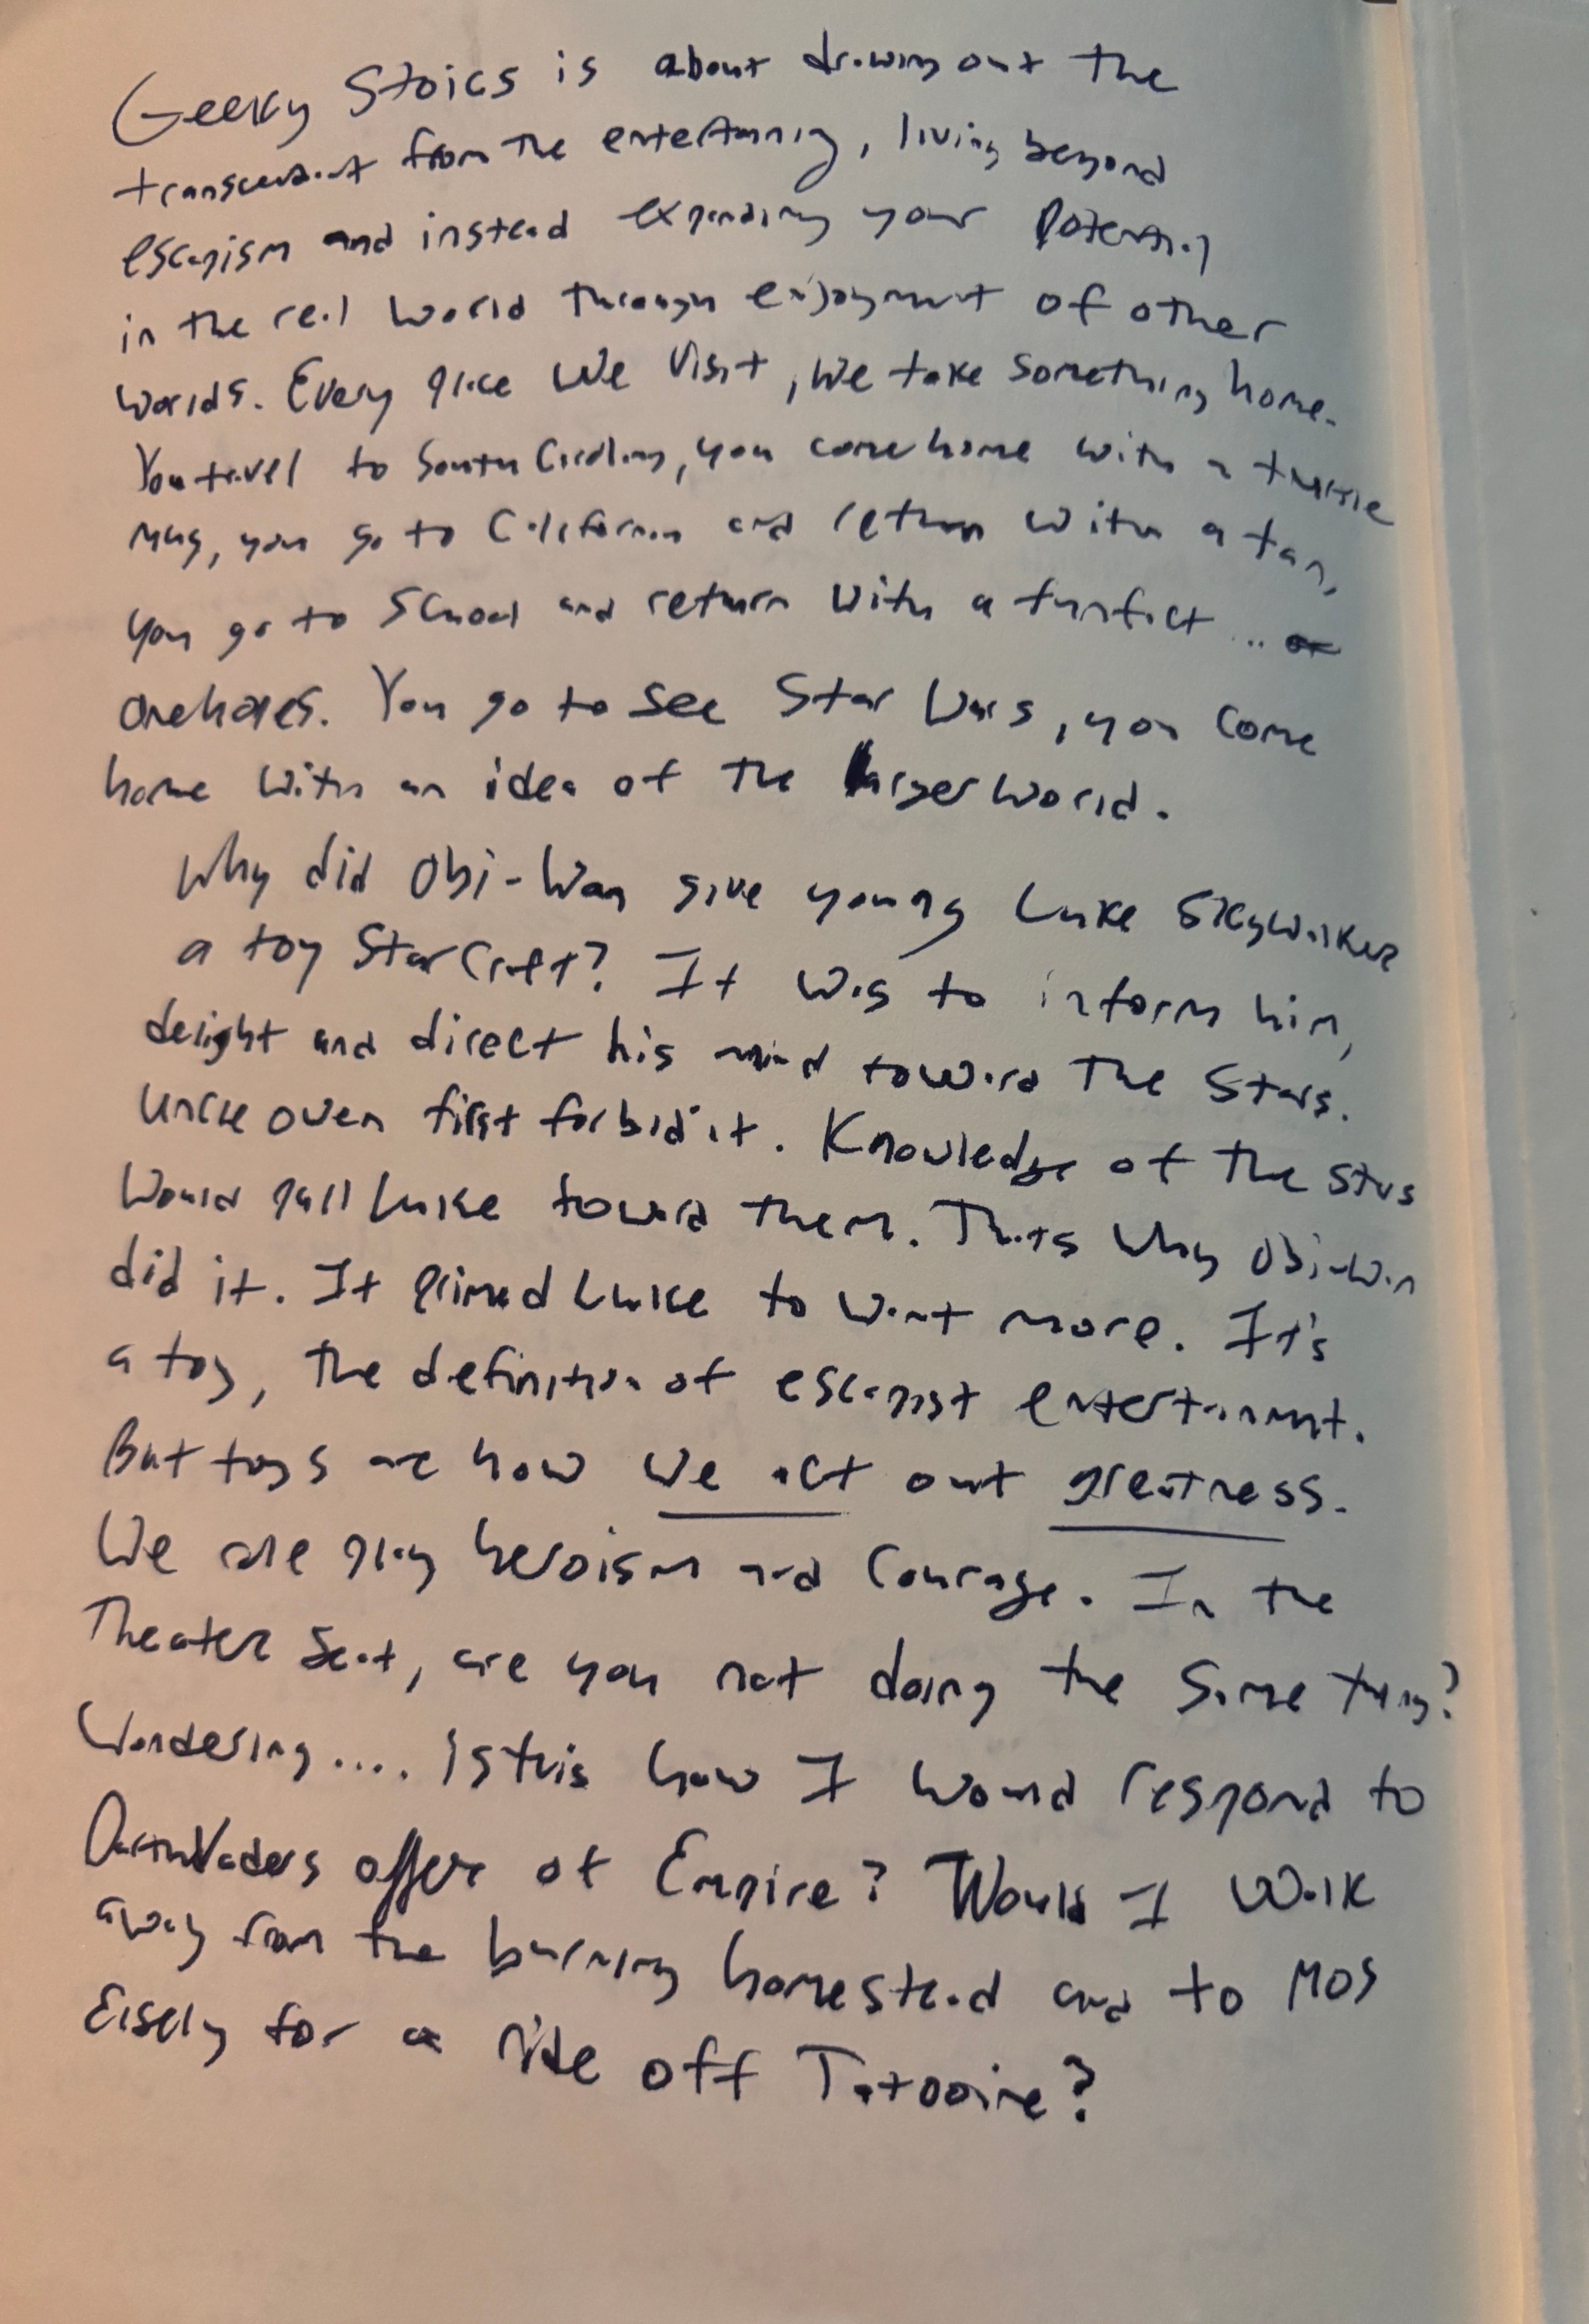 Geeky Stoics is about drawing out the
transcendent from the entertaining, living beyond
escapism and instead expanding your potential
in the real world through enjoyment of other
worlds. Every place we visit, we take something home.
You travel to South Carolina, you come home with a turtle
mug, you go to California and return with a tan,
you go to school and return with a fun fact...
one hopes. You go to see Star Wars, you come
home with an idea of the larger world.
Why did Obi-Wan give young Luke Skywalker
a toy Starcraft? It was to inform him,
delight and direct his mind toward the Stars.
Uncle Owen first forbid it. Knowledge of the stars
would pull Luke toward them. Thats why Obi-Wan
did it. It primed Luke to want more. It's
a toy, the definition of escapist entertainment.
But toys are how we act out greatness.
We are play heroism and Courage. In the
Theater Seat, are you not doing the same thing?
Wondering.... Is this how I would respond to
Darth Vaders offer of Empire? Would I walk
away from the burning homestead and to Mos
Eisely for a ride off Tatooine?